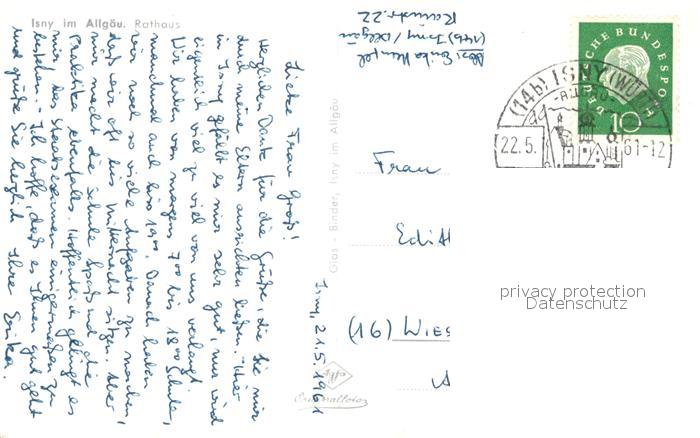 Isny im Allgäu. Rathaus
Isny, 21.5.1961
Liebe Frau Groß!
Herzlichen Dank für die Grüße, die Sie mir
durch meine Eltern ausrichten ließen. Hier
in Isny gefällt es mir sehr gut, nur wird
eigentlich viel zu viel von uns verlangt.
Wir haben von morgens 7⁰⁰ bis 18⁰⁰ Schule,
manchmal auch bis 19⁰⁰. Danach haben
wir noch so viele Aufgaben zu machen,
daß wir oft bis Mitternacht sitzen. Aber
mir macht die Schule Spaß und die
Praktika ebenfalls. Hoffentlich gelingt es
mir das Staatsexamen einigermaßen zu
bestehen. - Ich hoffe, daß es Ihnen gut geht
und grüße Sie herzlich Ihre Erika.
Abs: Erika
(14b) Isny/Allgäu
22
Glas - Binder, Isny im Allgäu
Agfa
Originalfoto
DEUTSCHE BUNDESPOST
10
(14b) ISNY (WÜRTT)
-ALLGÄU-
22.5.61-12
Frau
Edith
(16) WIES
privacy protection
Datenschutz